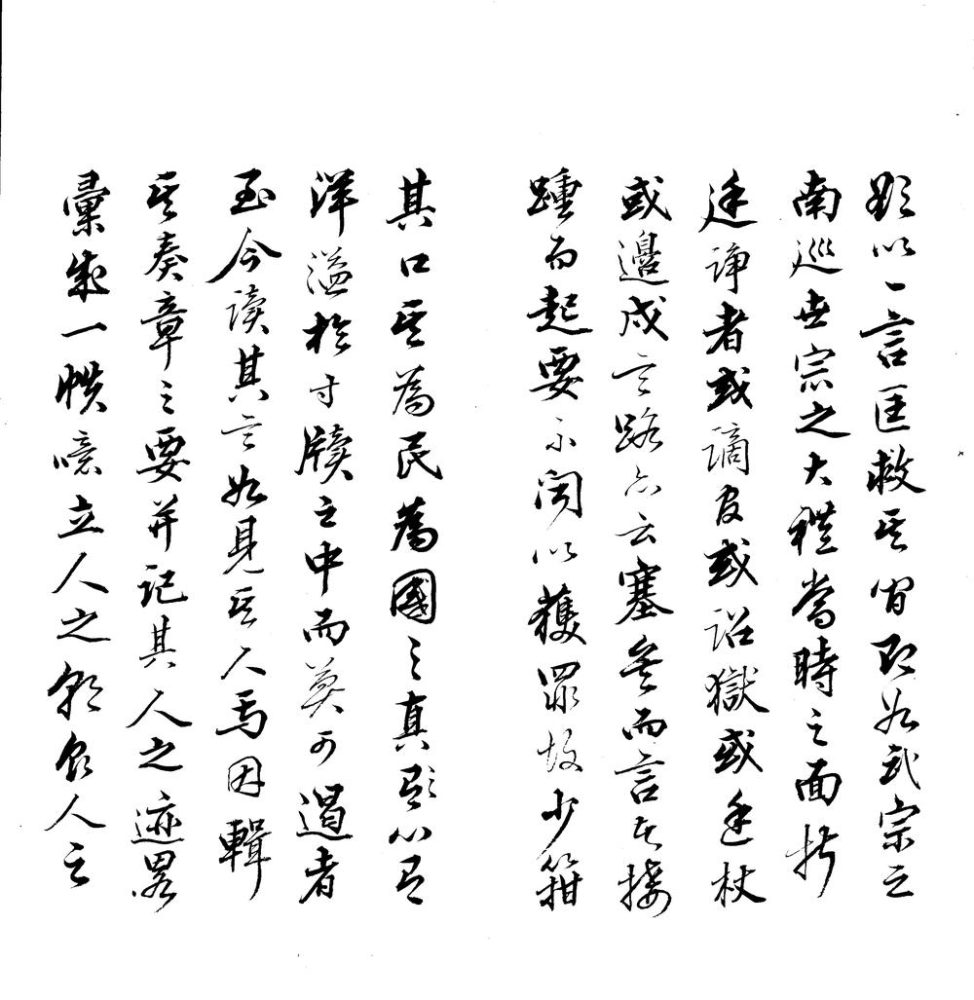 欲以一言匡救其間即如武宗之
南巡世宗之大禮當時之面折
廷諍者或謫官或詔獄或廷杖
或邊戍言路亦云塞矣而言者接
踵而起要不聞以獲罪故少箝
其口其為民為國之真心有
洋溢於寸牘之中而莫可遏者
至今讀其言如見其人焉因輯
其奏章之要并記其人之迹略
彙成一帙噫立人之朝食人之